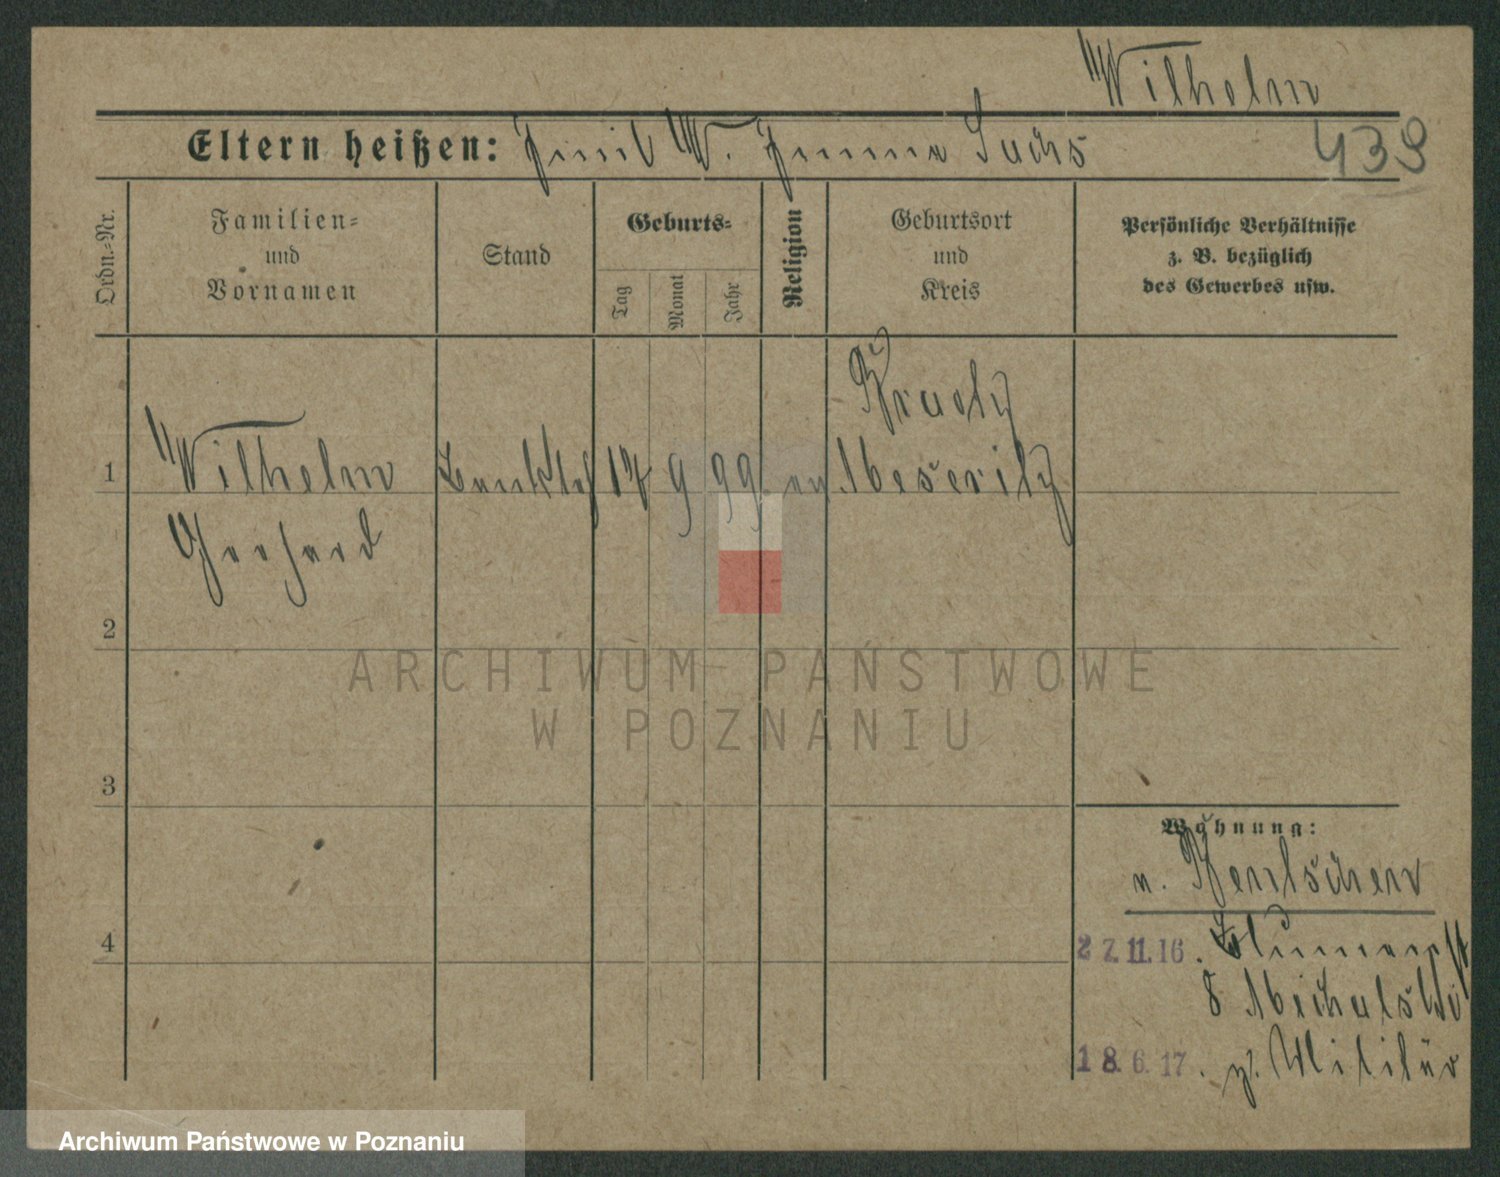 Wilhelm
Eltern heißen: Emil W. Emma Fuchs
439
Ordn.-Nr.
Familien-
und
Vornamen
Stand
Geburts-
Tag
Monat
Jahr
Religion
Geburtsort
und
Kreis
Persönliche Verhältnisse
z. B. bezüglich
des Gewerbes usw.
1
Wilhelm
Gerhard
9 99 ev.
Meseritz
2
3
4
Wohnung:
n. Bentschen
27.11.16. Blumenst
8 Michalski
18.6.17. z. Militär
ARCHIWUM PAŃSTWOWE
W POZNANIU
Archiwum Państwowe w Poznaniu